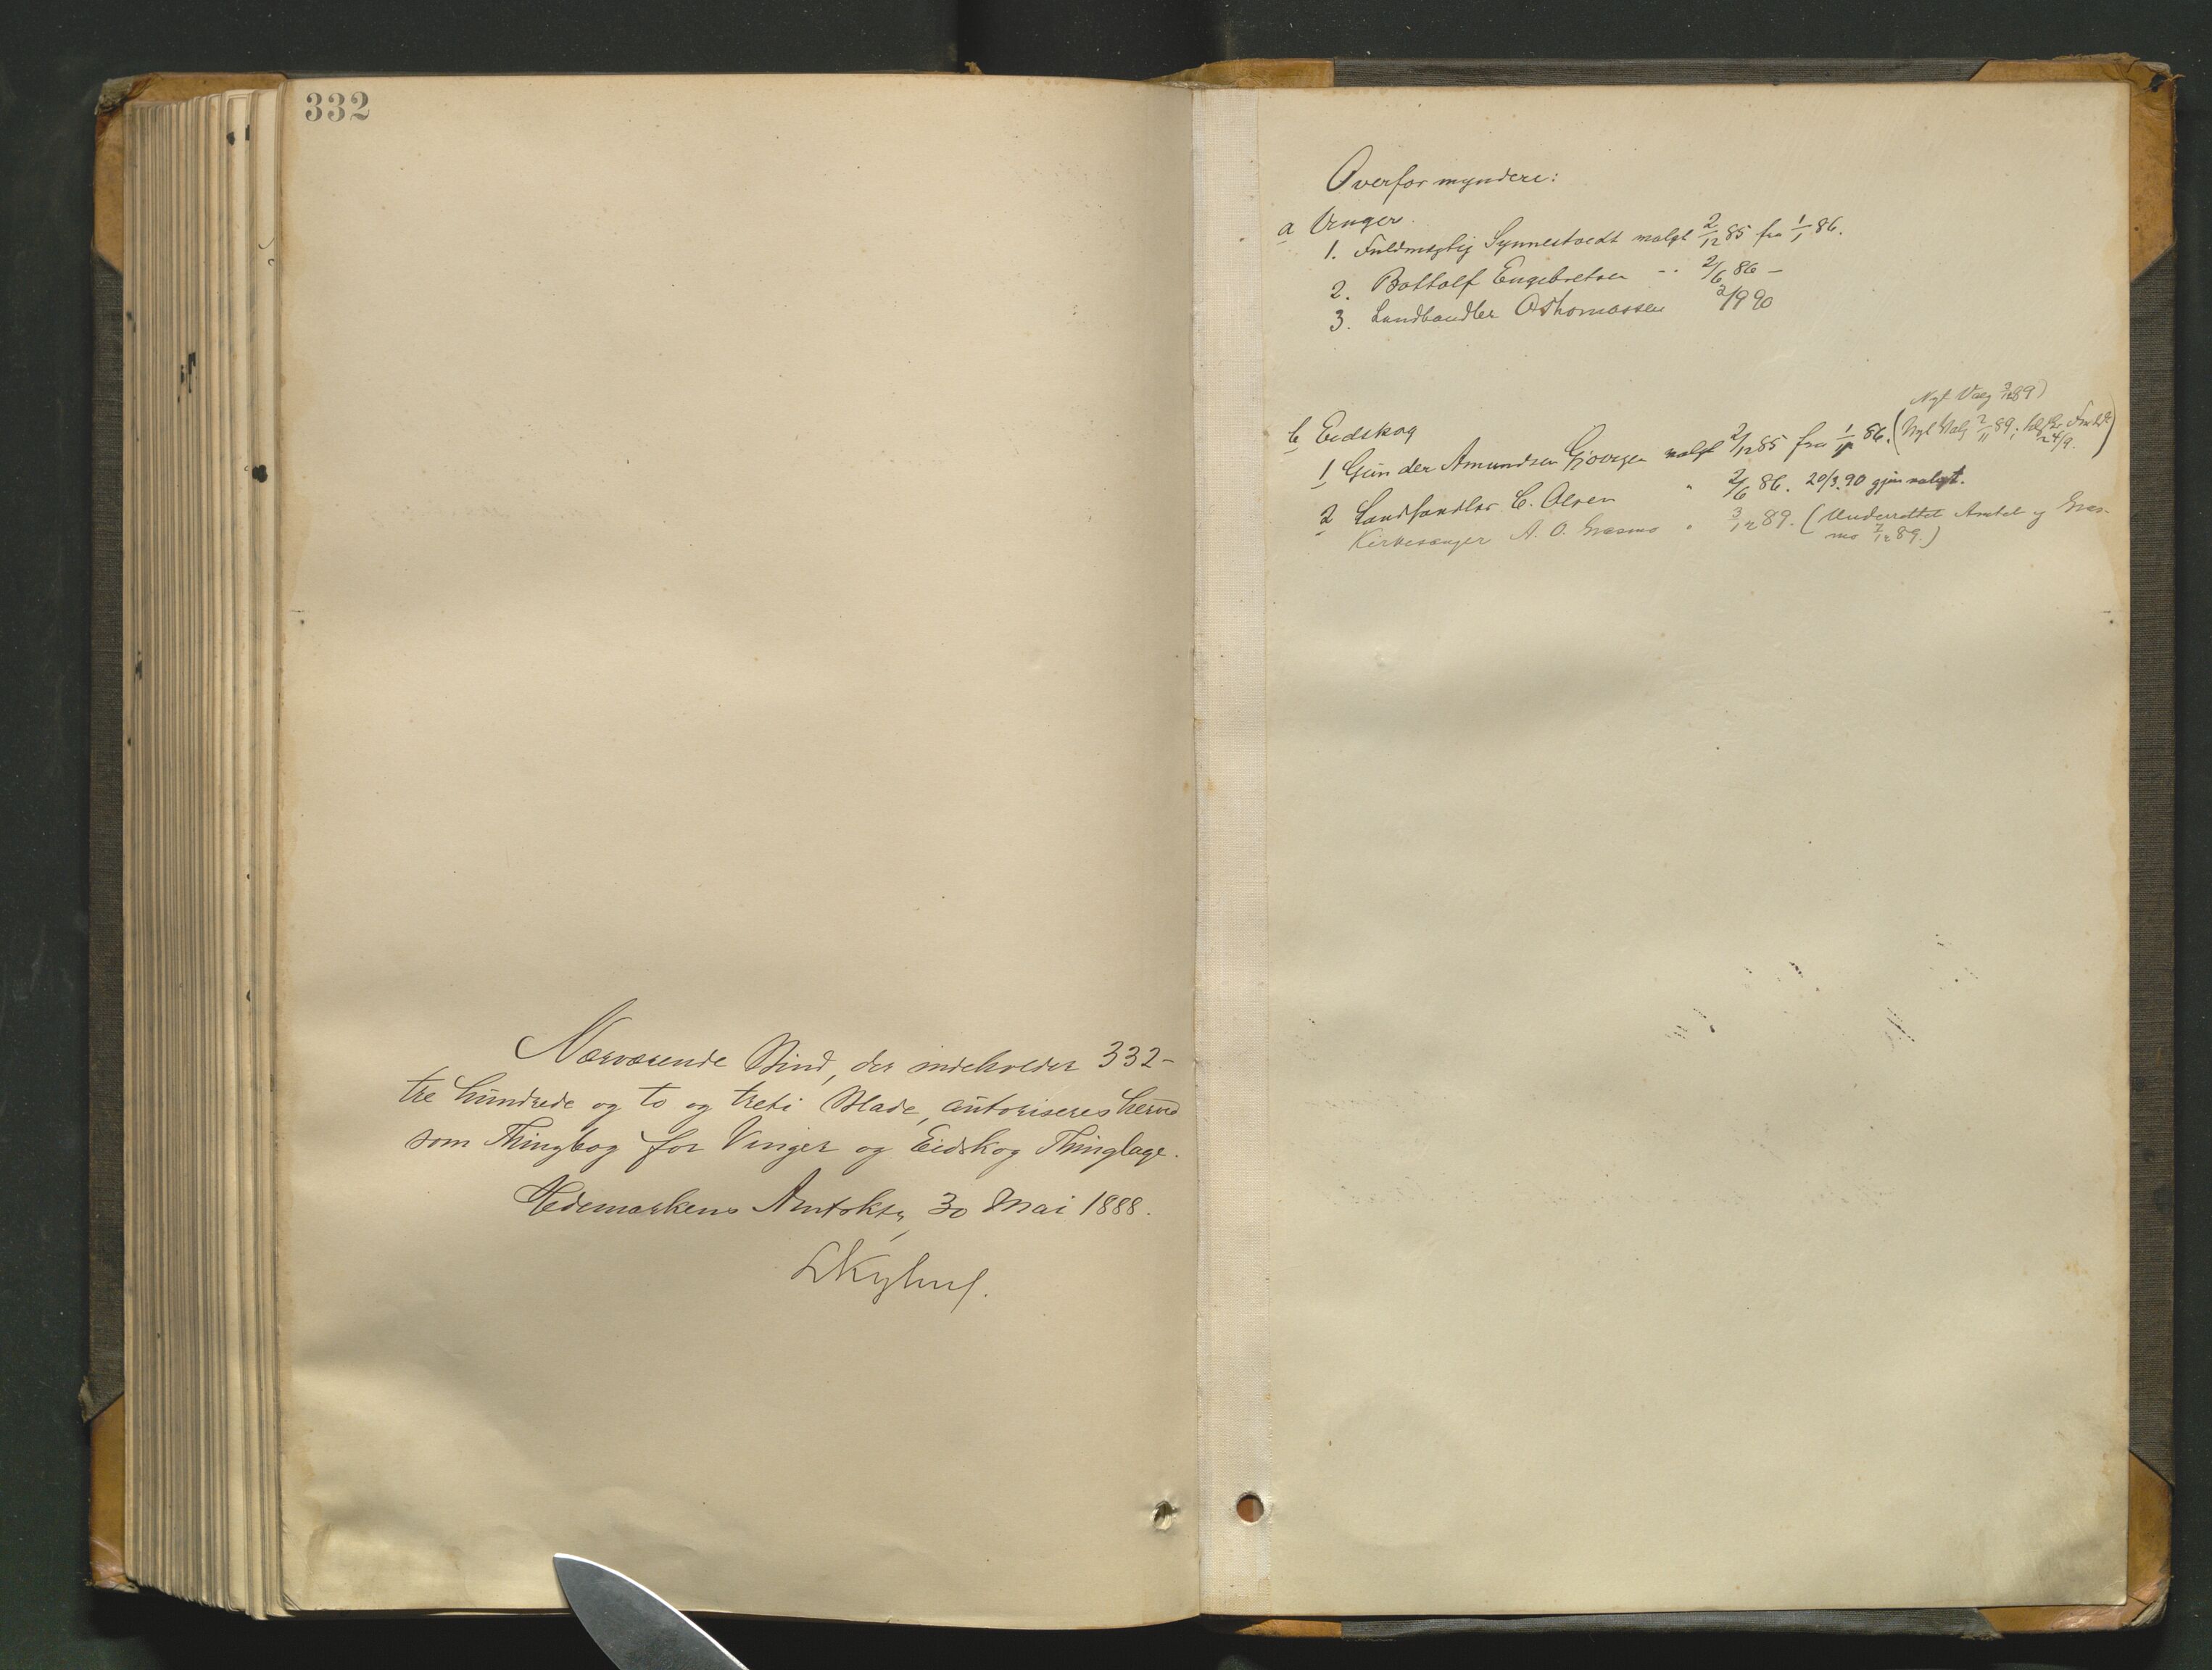 332
Nærværende Bind, der indeholder 332-
tre hundrede og to og treti Blade, autoriseres herved
som Thingbog for Vinger og Eidskog Thinglage.
Hedemarkens Amtskt, 30 Mai 1888.
Overformyndere:
a Vinger
1. Fuldmægtig Synnestvedt valgt 2/12 85 fra 1/1 86.
2. Bottolf Engebretsen -- 2/6 86 -
3. Landhandler O Thomassen 2/9 90
Nyt Valg 3/12 89)
b Eidskog
1 Gunder Amundsen valgt 2/12 85 fra 1/1 86. (Nyt Valg 2/11 89,
2 Landhandler C. Olsen " 2/6 86. 20/3.90 gjenvalgt.
Kirkesanger A. O. Græsmo " 3/12 89. (Underrettet Amtet og Græs-
mo 7/12 89.)